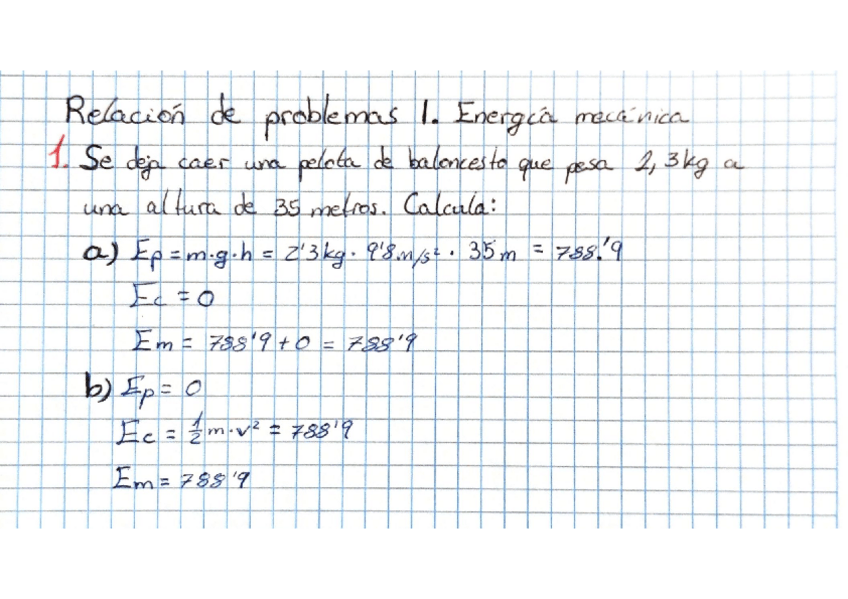 Relación de problemas 1. Energía mecánica
1. Se deja caer una pelota de baloncesto que pesa 2,3kg a
una altura de 35 metros. Calcula:
a) Ep = m·g·h = 2'3kg · 9'8 m/s² · 35m = 788'9
Ec = 0
Em = 788'9 + 0 = 788'9
b) Ep = 0
Ec = 1/2 m·v² = 788'9
Em = 788'9